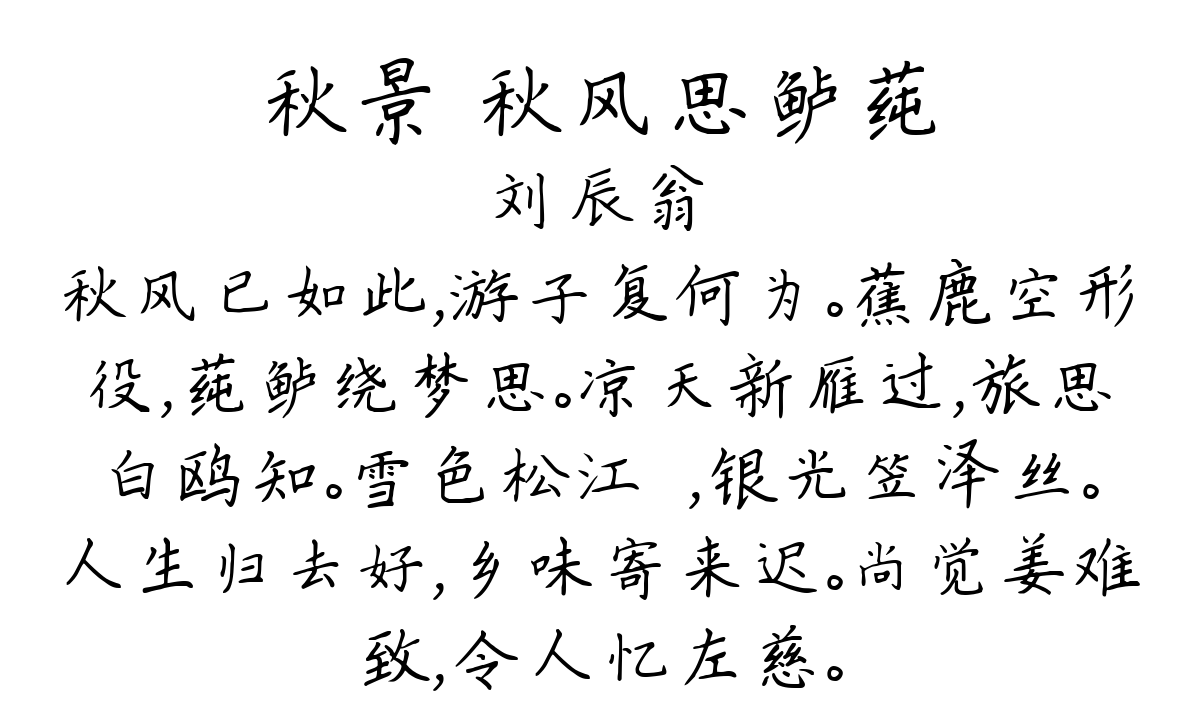 秋景 秋风思鲈莼
刘辰翁
秋风已如此,游子复何为。蕉鹿空形
役,莼鲈绕梦思。凉天新雁过,旅思
白鸥知。雪色松江 ,银光笠泽丝。
人生归去好,乡味寄来迟。尚觉姜难
致,令人忆左慈。